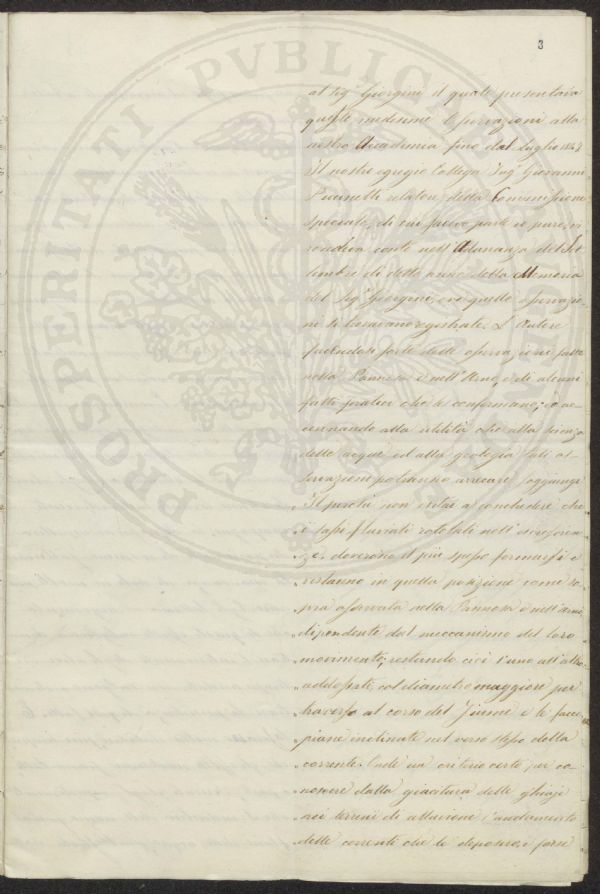 3
al Sig. Giorgini il quale presentava
queste medesime Osservazioni alla
nostra Accademia fino dal Luglio
Il nostro egregio Collega Ing. Giovanni
relatore della Commissione
speciale, di cui parte io pure, vi
rendeva conto nell'Adunanza del Set
tembre di detto anno della Memoria
del Sig. Giorgini, ove quelle osservazio-
ni si trovavano registrate. L'Autore
facendosi forte delle osservazioni fatte
nella e nell'Arno, e di alcuni
fatti pratici che le confermano; ed ac-
cennando alla utilità che alla scienza
delle acque ed alla geologia tali os-
servazioni potranno arrecare soggiunge
Il perchè non esitai a concludere che
„ i sassi fluviali rotolati nell'
„ ze, doverono il più spesso fermarsi e
„ restarono in quella posizione come so
„ pra osservata nella e nell'Arno,
„ dipendente dal meccanismo del loro
„ movimento; restando cioè l'uno all'altro
„ addossati, col diametro maggiore per
„ traverso al corso del Fiume e le facce
„ piane inclinate nel verso stesso della
„ corrente. Onde un criterio certo per co-
„ noscere dalla giacitura delle ghiaje
„ nei terreni di alluvione l'andamento
„ delle correnti che le deposero; forse
PROSPERITATI PVBLICAE